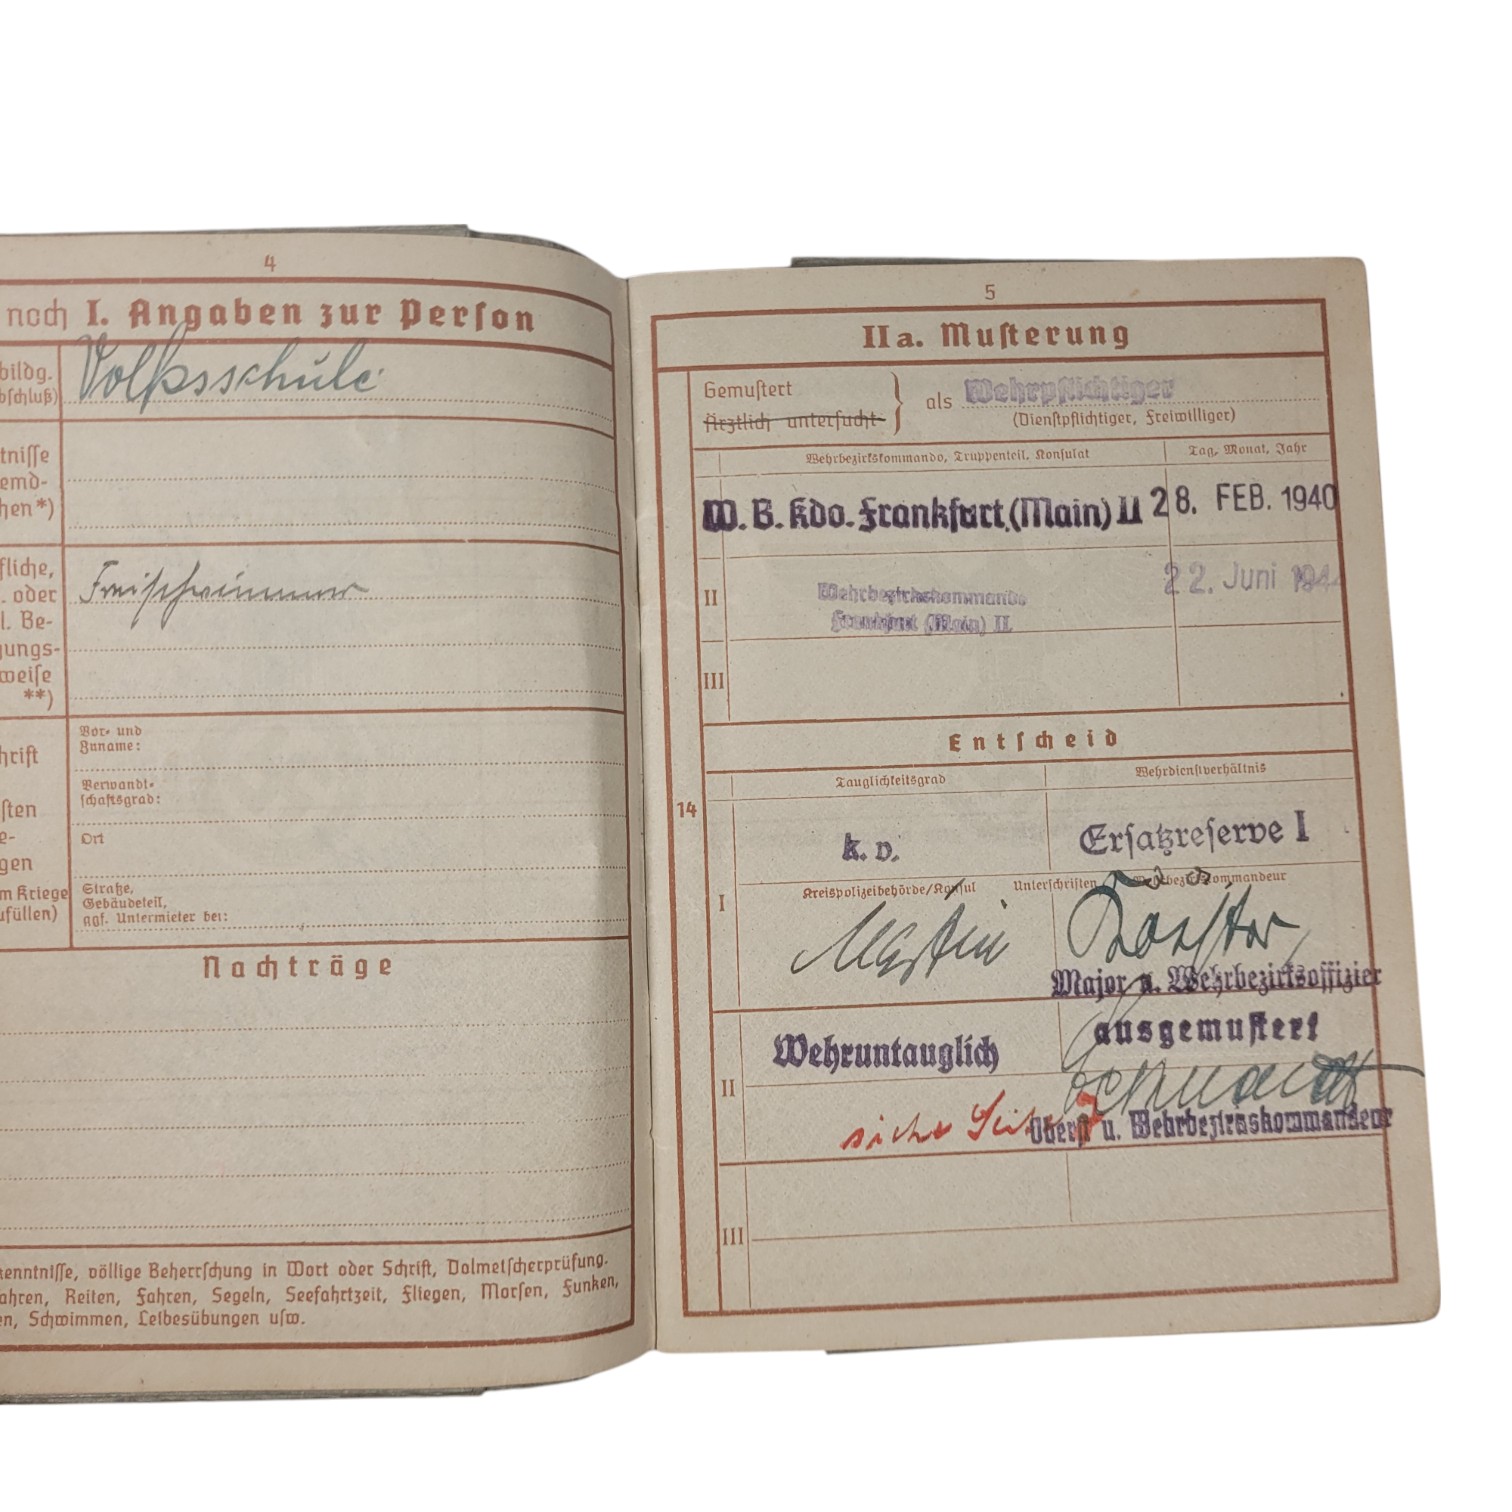 4
noch I. Angaben zur Person
bildg.
bschluß)
Volksschule
tnisse
emd-
hen*)
fliche,
. oder
l. Be-
gungs-
weise
**)
Freischwimmer
hrift
sten
e-
gen
m Kriege
ufüllen)
Vor- und
Zuname:
Verwandt-
schaftsgrad:
Ort
Straße,
Gebäudeteil,
ggf. Untermieter bei:
Nachträge
kenntnisse, völlige Beherrschung in Wort oder Schrift, Dolmetscherprüfung.
ahren, Reiten, Fahren, Segeln, Seefahrtzeit, Fliegen, Morsen, Funken,
en, Schwimmen, Leibesübungen usw.
5
IIa. Musterung
Gemustert
Ärztlich untersucht
als Wehrpflichtiger
(Dienstpflichtiger, Freiwilliger)
Wehrbezirkskommando, Truppenteil, Konsulat
Tag, Monat, Jahr
W. B. Kdo. Frankfurt (Main) II 28. FEB. 1940
II
Wehrbezirkskommando
Frankfurt (Main) II
22. Juni 1944
III
Entscheid
Tauglichkeitsgrad
Wehrdienstverhältnis
14
k. v.
Ersatzreserve I
I
Kreispolizeibehörde/Konsul
Unterschriften
Wehrbezirkskommandeur
Martin
Major u. Wehrbezirksoffizier
II
Wehruntauglich
ausgemustert
siehe Seite
Oberst u. Wehrbezirkskommandeur
III